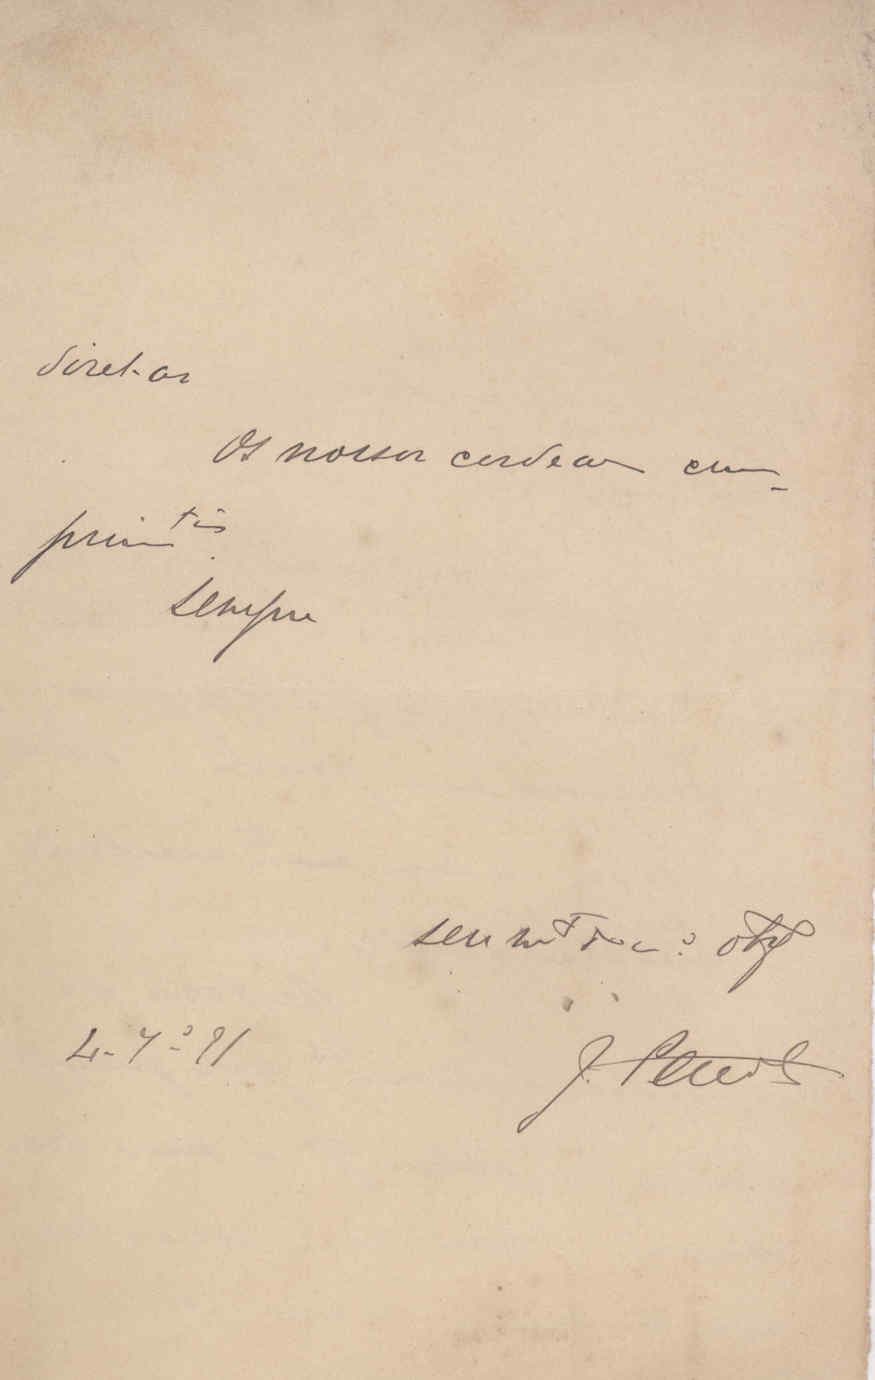 diretor
Os nossos cordeaes cum-
prim.tos
sempre
seu m.to
4-7º-91
J.